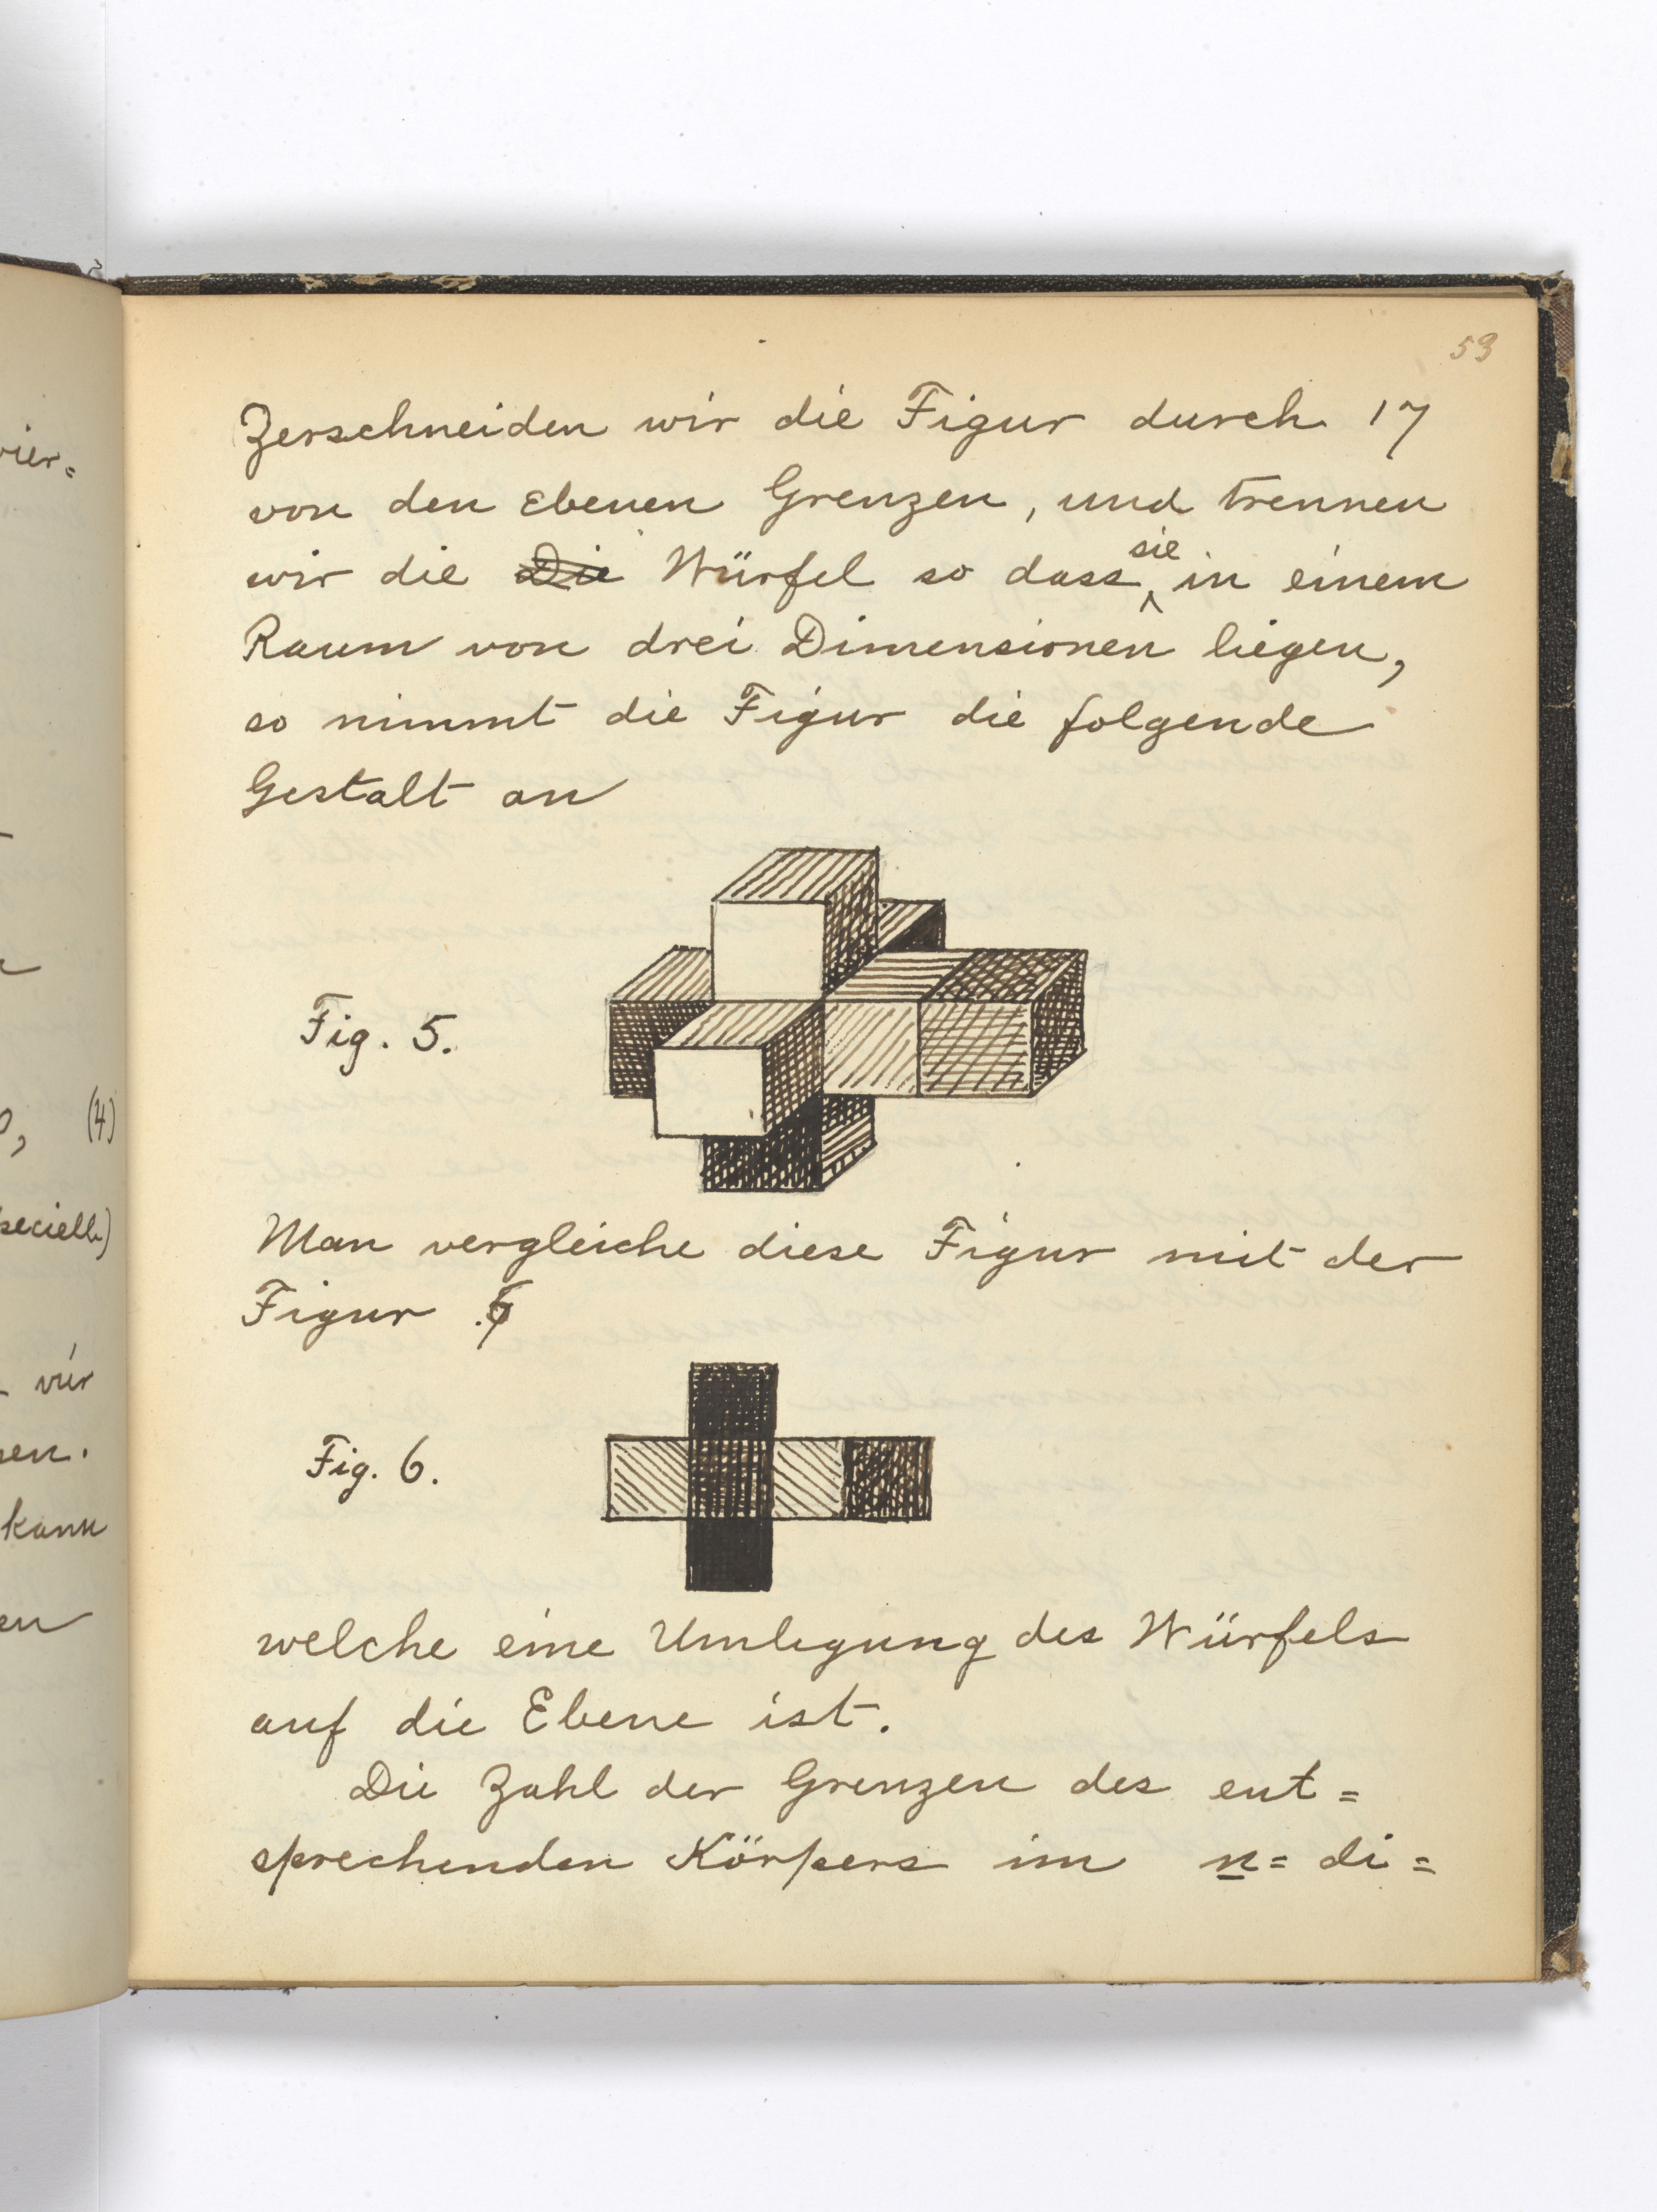 53
Zerschneiden wir die Figur durch 17
von den Ebenen Grenzen, und trennen
wir die Die Würfel so dass sie in einem
Raum von drei Dimensionen liegen,
so nimmt die Figur die folgende
Gestalt an
Fig. 5.
Man vergleiche diese Figur mit der
Figur 6
Fig. 6.
welche eine Umlegung des Würfels
auf die Ebene ist.
Die Zahl der Grenzen des ent=
sprechenden Körpers im n= di=
vier=
(4)
vier
kann